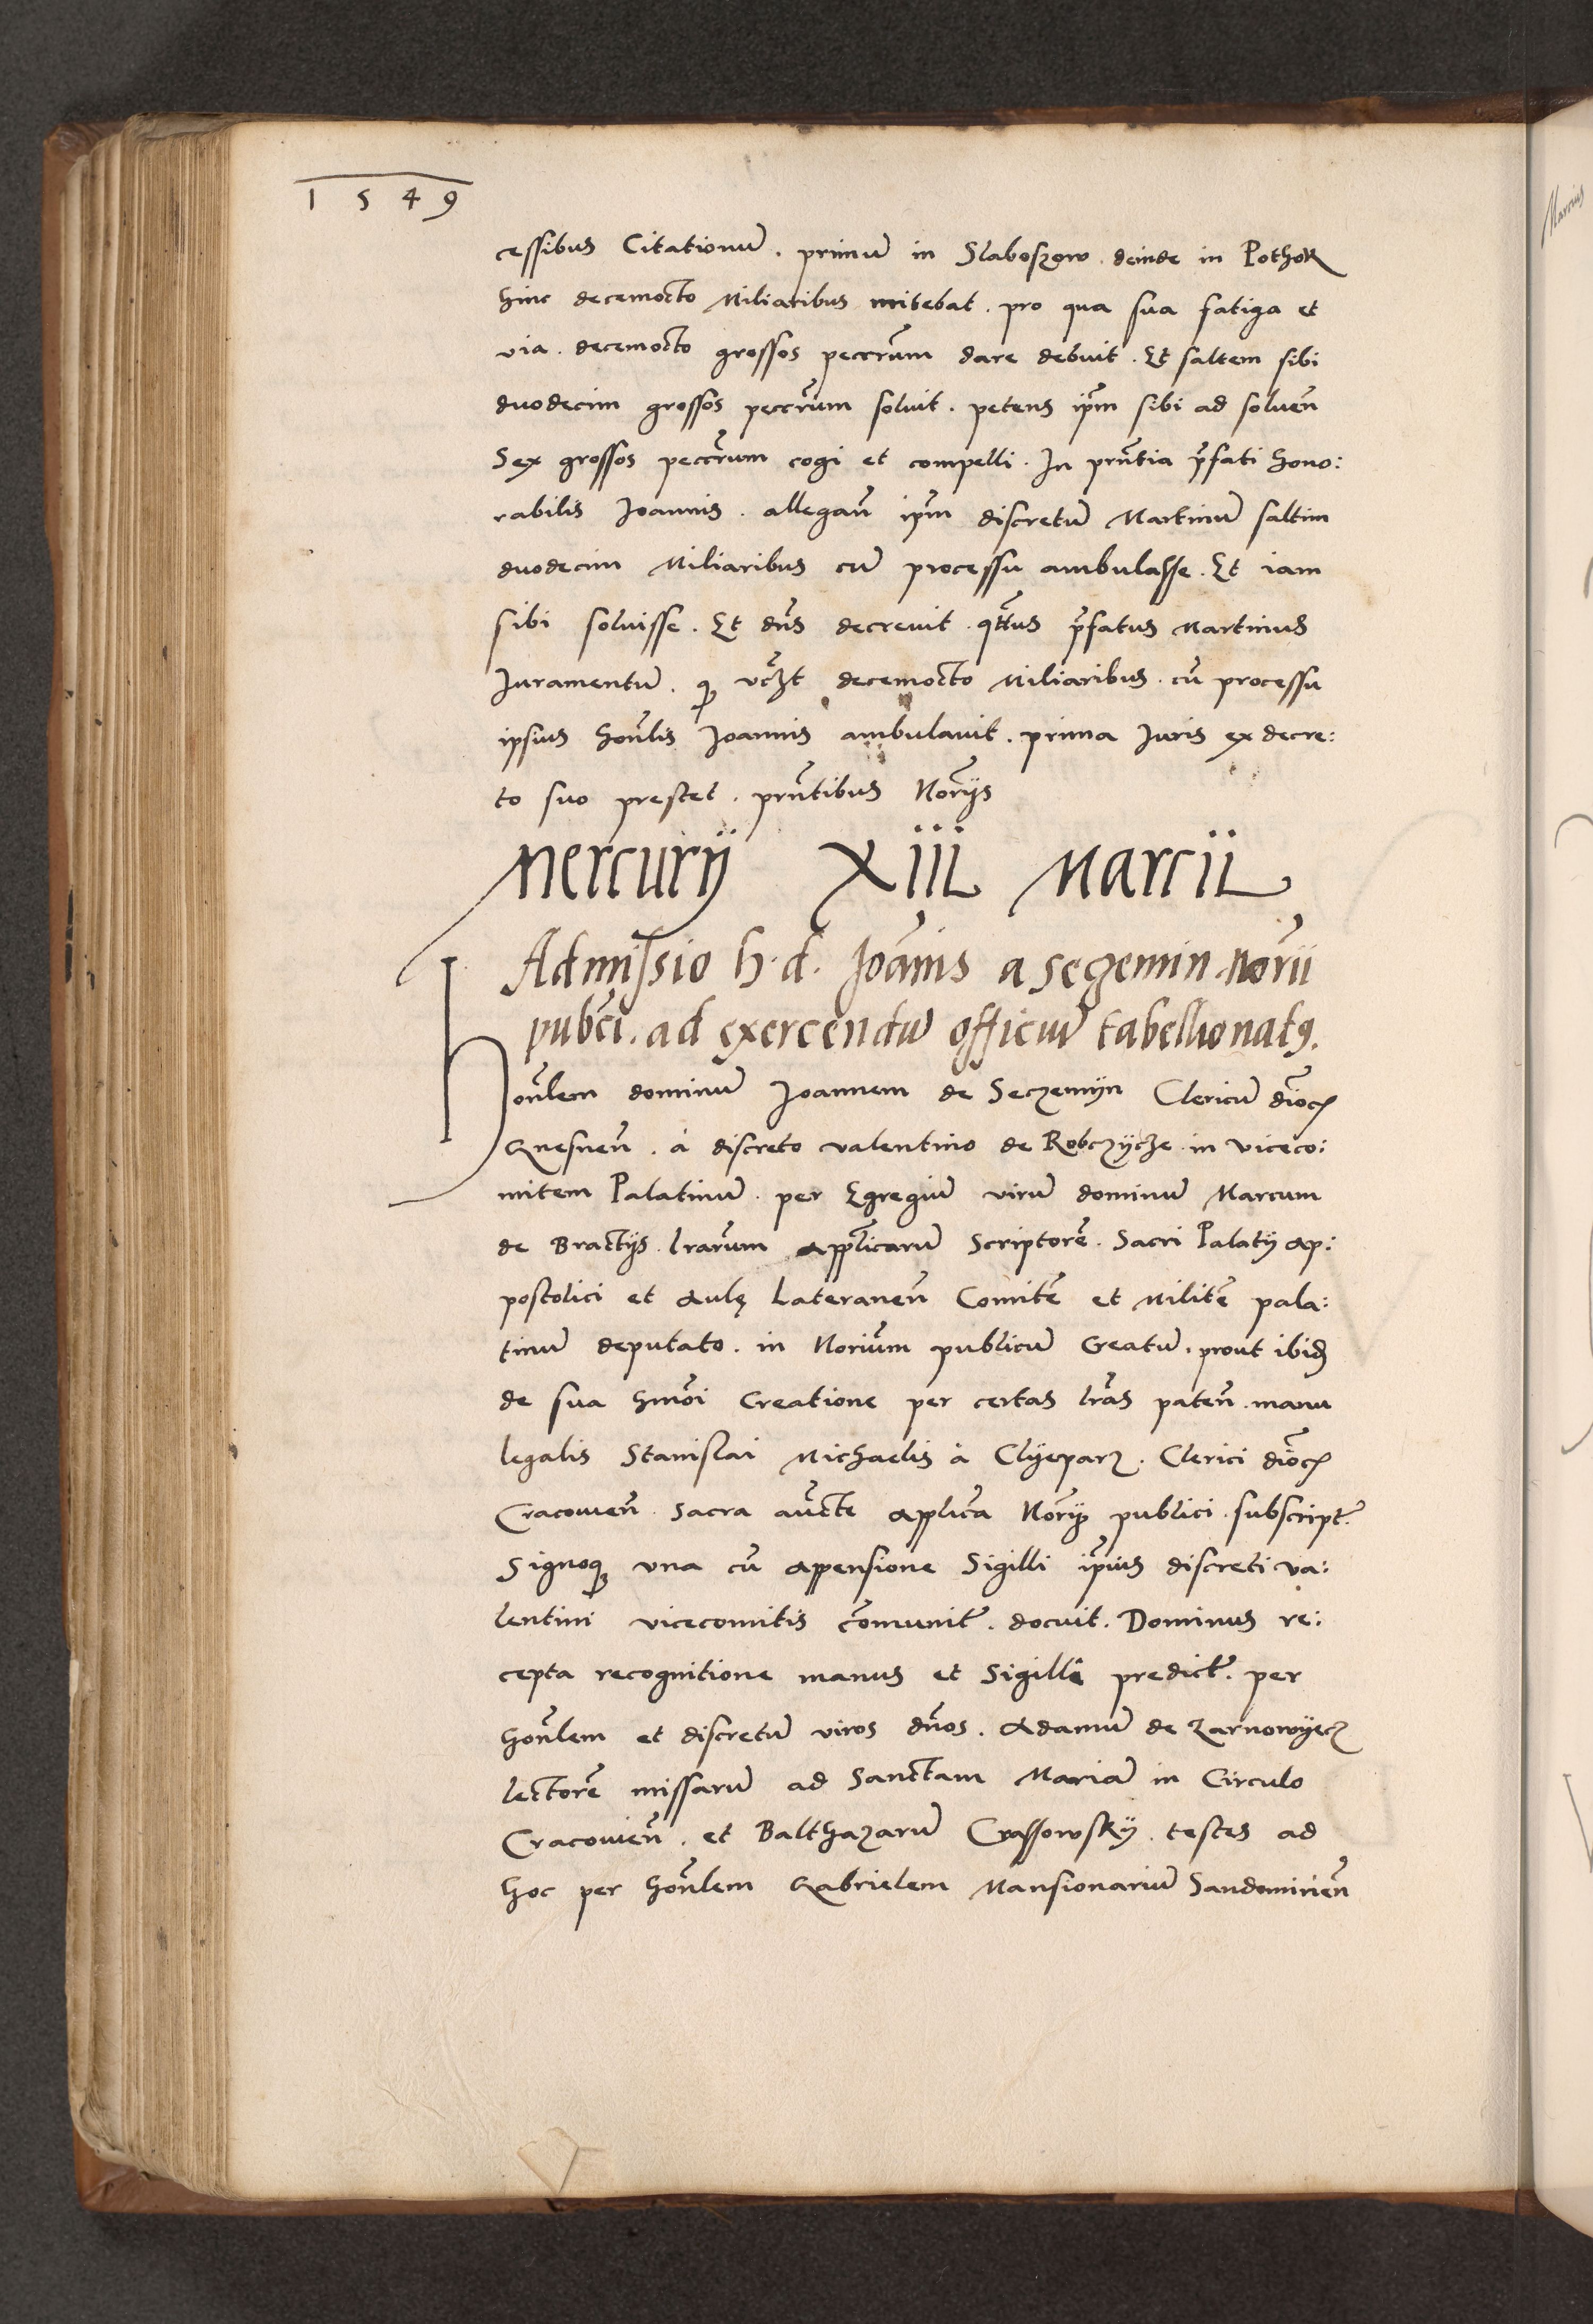 1549
cessibus Citationũ. primũ in Slaboszow. deinde in Pothok
hinc decemocto Miliaribus mitebat. pro qua sua fatiga et
via. decemocto grossos peccr̃um dare debuit. Et saltem sibi
duodecim grossos peccr̃um soluit. petens ip̃m sibi ad soluen̄
Sex grossos peccr̃um cogi et compelli. In pñtia p̃fati hono:
rabilis Joannis. allegan̄ ip̃m discretũ Martinũ saltim
duodecim Miliaribus cũ processu ambulasse. Et iam
sibi soluisse. Et dñs decreuit q̃tus p̃fatus Martinus
Juramentũ. decemocto Miliaribus. cũ processu
ipsius hon̄lis Joannis ambulauit. prima Juris ex decre:
to suo prestet. prñtibus Nor̃ijs
Mercurij XIII Marcii
Admissio h. d. Joãnis a Segemin. Norii
pubc̃i. ad exercendũ officiũ tabellionatꝰ.
Hon̄lem dominũ Joannem de Seczemijn Clericũ dioc̃
Gnesnen̄. à discreto valentino de Robczijcze in viceco:
mitem Palatinũ. per Egregiũ virũ dominũ Marcum
de Bractijs. lrãrum applicarũ Scriptorẽ. Sacri Palatij ap:
postolici et aulę Lateranen̄ Comitẽ et Militẽ pala:
tinũ deputato. in Noriũm publicũ Creatũ. prout ibid
de sua hmõi Creatione per certas lrãs paten̄. manu
legalis Stanislai Michaelis à Clijeparz. Clerici dioc̃
Cracouien̄. Sacra auc̃te applica Nor̃ij publici. subscript̃.
Signoq; vna cũ appensione Sigilli ip̃ius discreti va:
lentini vicecomitis cõmunit̃. docuit. Dominus re:
cepta recognitione manus et Sigilli predict̃. per
hon̄lem et discretũ viros dños. Adamũ de Zarnowijecz
lectorẽ missarũ ad Sanctam Mariã in Circulo
Cracouien̄. et Balthazarũ Crassowskij. testes ad
hoc per hon̄lem Gabrielem Mansionariũ Sandomirien̄
Marcius